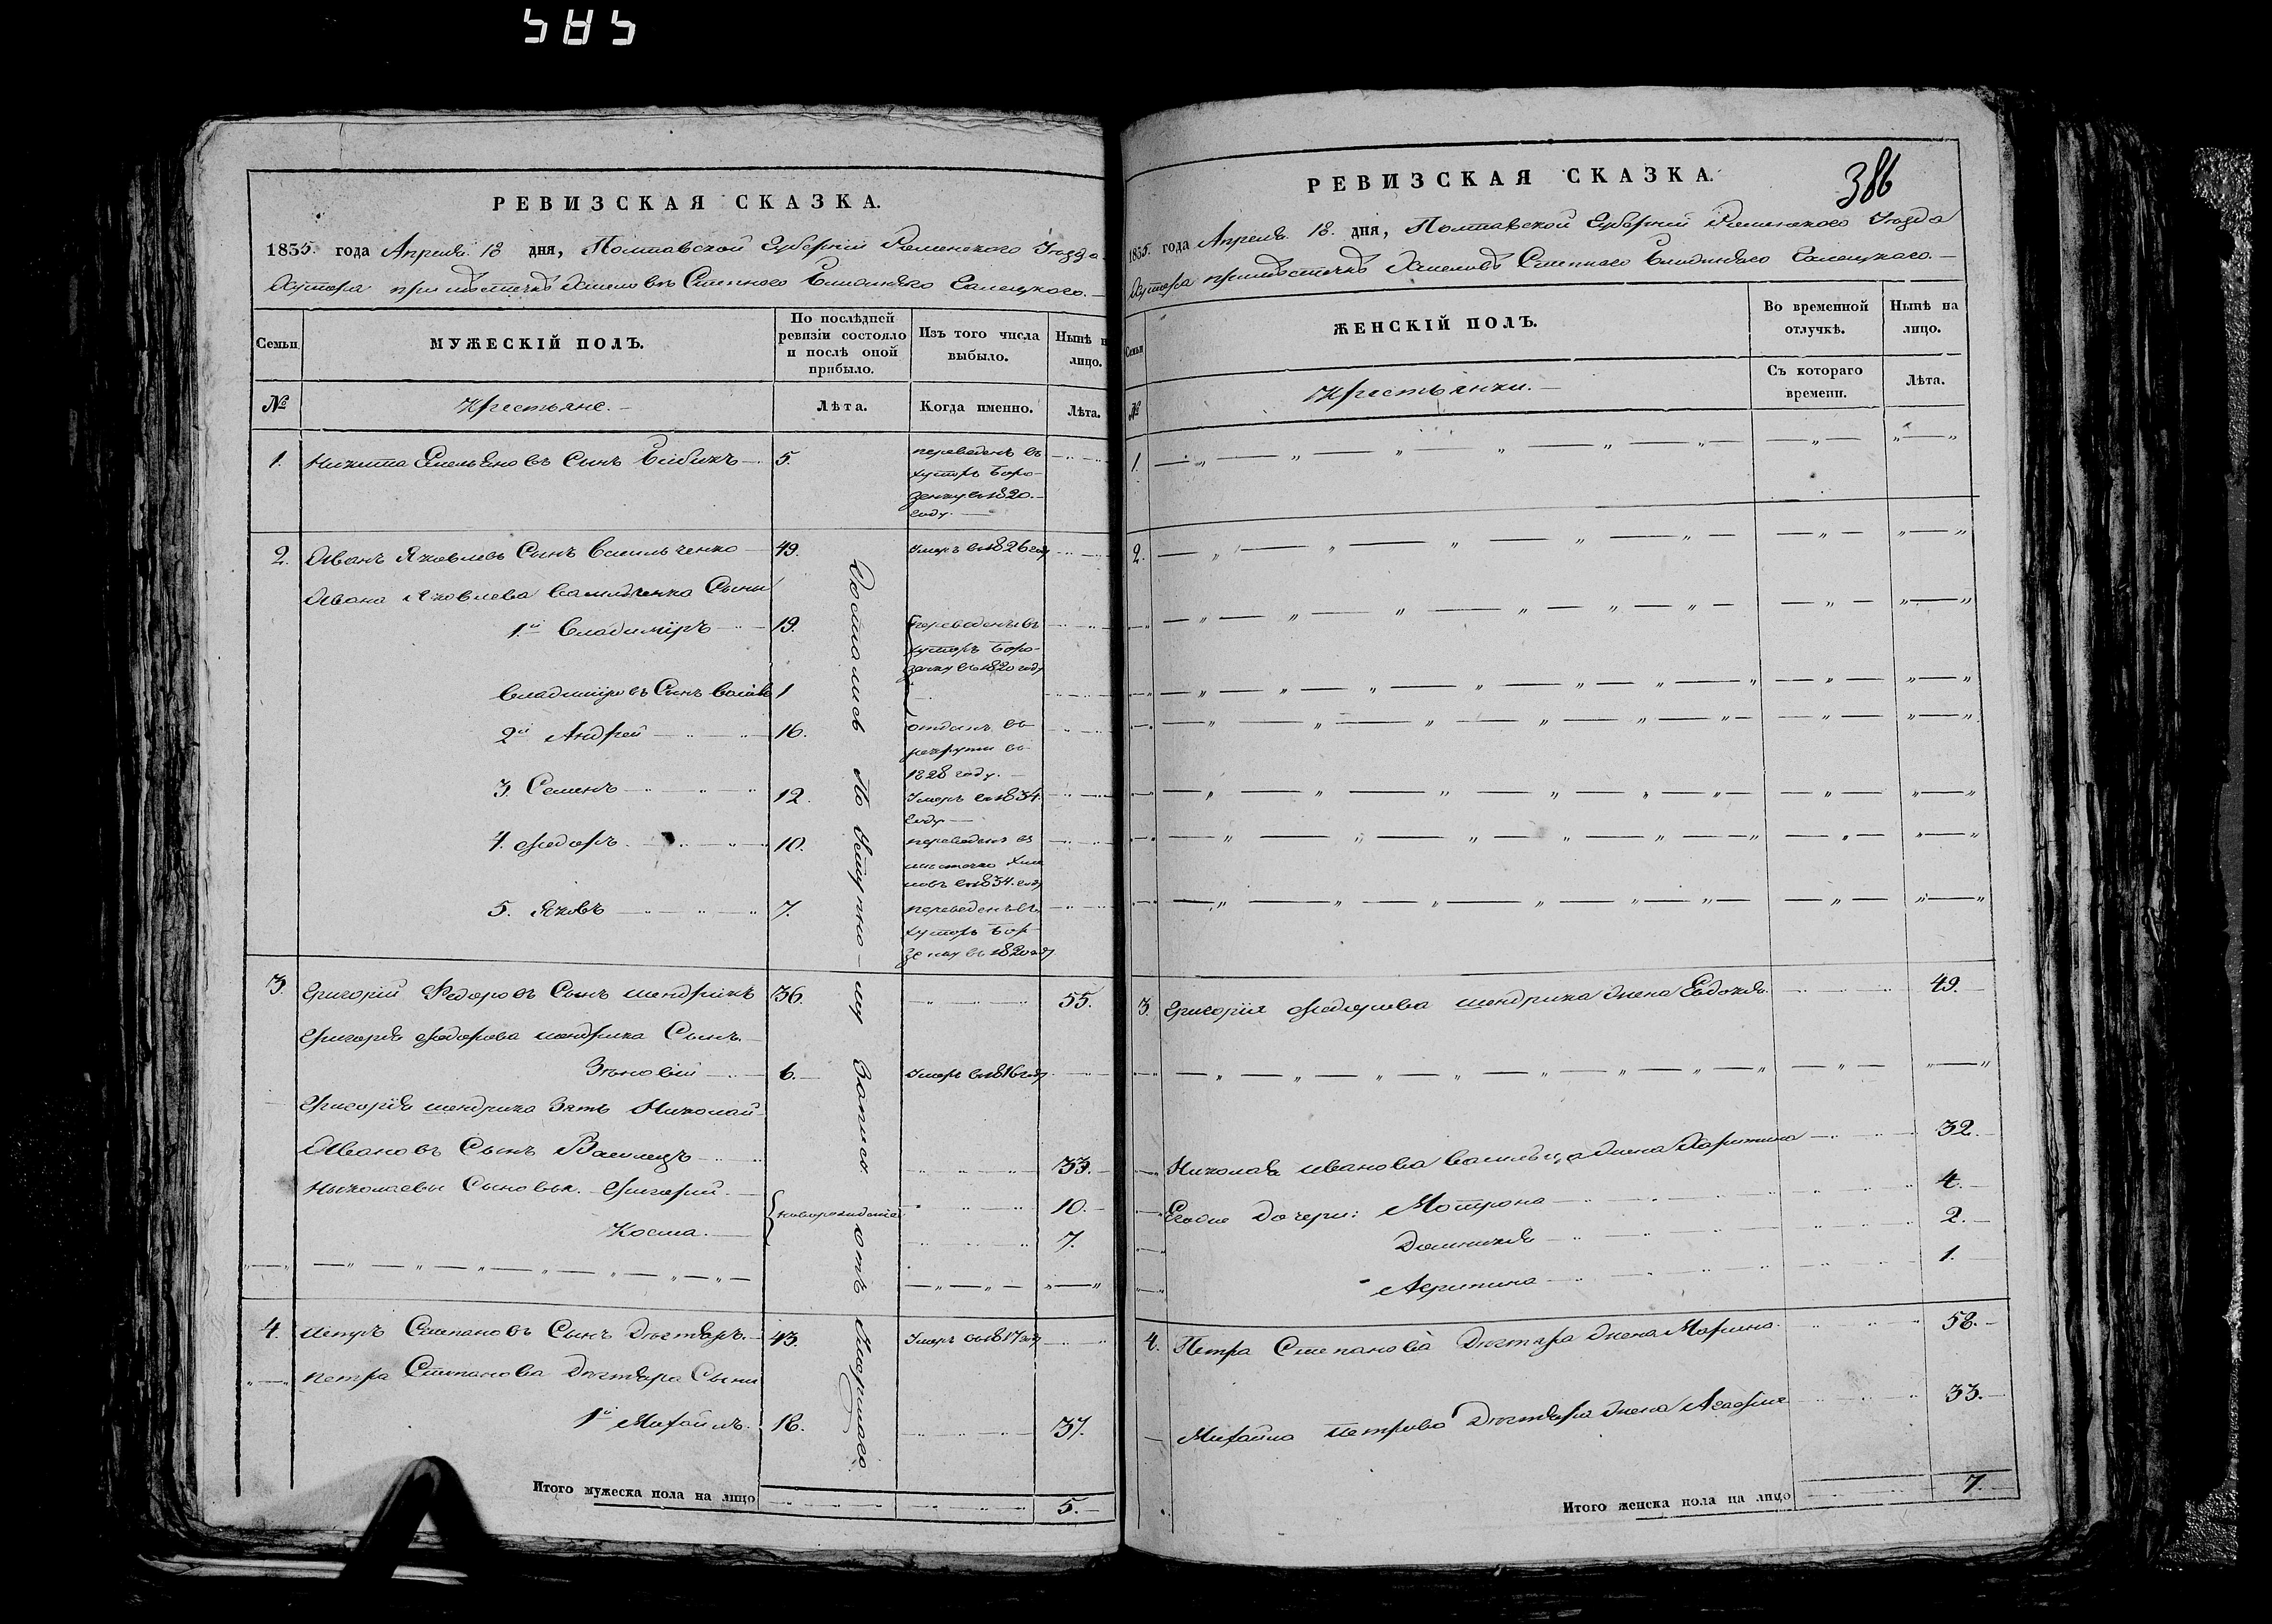 585
РЕВИЗСКАЯ СКАЗКА.
1835. года Апреля 18 дня, Полтавской Губернїи Роменского Уезда
Хутора при местечке Хмелов Степного
МУЖЕСКІЙ ПОЛЪ.
Семьи
По послѣдней ревизіи состояло и послѣ оной прибыло.
Изъ того числа выбыло.
Нынѣ н лицо.
№
Крестьяне. —
Лѣта.
Когда именно.
Лѣта.
1. Никита Емельяновъ Сынъ Бибикъ 5.
переведенъ въ
хуторъ Боро-
зенку в 1820.
году.
2. Иванъ Яковлевъ Сынъ Васильченко 49. Умеръ в 1826 году
Ивана Яковлева Васильченка Сыны
1й Владимїръ 19. переведены въ
хуторъ Боро-
зенку въ 1820 году
Владимїровъ Сынъ 1
2й Андрей 16. отданъ въ
рекруты въ
1828 году.
3. Семенъ 12. Умеръ в 1834.
году
4. Федоръ 10. переведенъ въ
местечко Хме
ловъ в 1834. году
5. Яковъ 7. переведенъ въ
хуторъ Бор-
зенку въ 1820 году
Достались По Запися отъ
3. Григорїй Федоровъ Сынъ Мендрикъ 36. 55.
Григорїя Федорова Мендрика Сынъ.
Зѣновїй 6. Умеръ в 1816 году
Григорїя Мендрика Зять Николай
Ивановъ Сынъ Василецъ 33.
Николаевы Сыновья. Григорий новорожденные 10.
Косма. 7.
4. Петръ Степановъ Сынъ Дегтяръ. 43. Умеръ в 1817 году
Петра Степанова Дегтяра Сыны
1й Михайлъ. 18. 37.
Итого мужеска пола на лицо 5.
386
РЕВИЗСКАЯ СКАЗКА.
1835. года Апреля 18. дня, Полтавской Губернїи Роменского Уезда
Хутора при местечке Хмелов Степного
Семьи
ЖЕНСКІЙ ПОЛЪ.
Во временной отлучкѣ.
Нынѣ на лицо.
№
Крестьянки. —
Съ котораго времени.
Лѣта.
1.
2.
3. Григорїя Федорова Мендрика жена Евдокия 49.
Николая Иванова Васильца жена Харитина 32.
Егоже дочери: Мотрона 4.
Домникия 2.
Агрипина 1.
4. Петра Степанова Дегтяра жена Марина 58.
Михайла Петрова Дегтяра жена Агафия 33.
Итого женска пола на лицо 7.